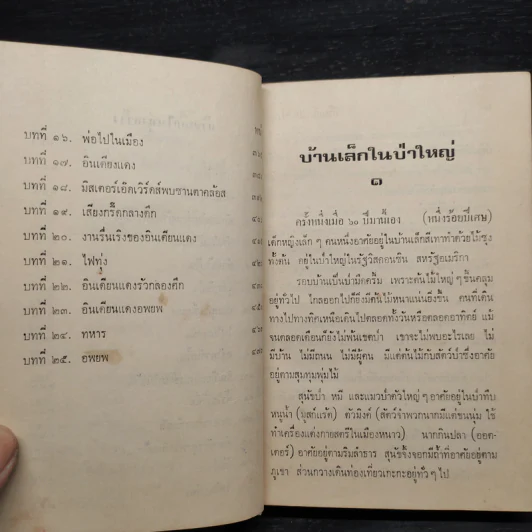 บทที่ ๑๖. พ่อไปในเมือง
บทที่ ๑๗. อินเดียนแดง
บทที่ ๑๘. มิสเตอร์เอ็ดเวิร์ดส์พบซานตาคลอส
บทที่ ๑๙. เสียงกรี๊ดกลางดึก
บทที่ ๒๐. งานรื่นเริงของอินเดียนแดง
บทที่ ๒๑. ไฟทุ่ง
บทที่ ๒๒. อินเดียนแดงรัวกลองศึก
บทที่ ๒๓. อินเดียนแดงอพยพ
บทที่ ๒๔. ทหาร
บทที่ ๒๕. อพยพ
บ้านเล็กในป่าใหญ่
๑
ครั้งหนึ่งเมื่อ ๖๐ ปีมานี้เอง (หนึ่งร้อยปีเศษ)
เด็กหญิงเล็ก ๆ คนหนึ่งอาศัยอยู่ในบ้านเล็กสีเทาทำด้วยไม้ซุง
ทั้งต้น อยู่ในป่าใหญ่ในรัฐวิสคอนซิน สหรัฐอเมริกา
รอบบ้านเป็นป่ามืดครึ้ม เพราะต้นไม้ใหญ่ ๆ ขึ้นคลุม
อยู่ทั่วไป ไกลออกไปก็ยิ่งมีต้นไม้หนาแน่นยิ่งขึ้น คนที่เดิน
ทางไปทางทิศเหนือเดินไปตลอดทั้งวันหรือตลอดอาทิตย์ แม้
จนตลอดเดือนก็ยังไม่พ้นเขตป่า เขาจะไม่พบอะไรเลย ไม่
มีบ้าน ไม่มีถนน ไม่มีผู้คน มีแต่ต้นไม้กับสัตว์ป่าซึ่งอาศัย
อยู่ตามสุมทุมพุ่มไม้
สุนัขป่า หมี และแมวป่าตัวใหญ่ ๆ อาศัยอยู่ในป่าทึบ
หนูน้ำ (มุสก์แร็ต) ตัวมิงค์ (สัตว์จำพวกนากมีแต่ขนนุ่ม ใช้
ทำเครื่องแต่งกายสตรีในเมืองหนาว) นากกินปลา (ออต-
เตอร์) อาศัยอยู่ตามริมลำธาร สุนัขจิ้งจอกมีถ้ำที่อาศัยอยู่ตาม
ภูเขา ส่วนกวางเดินท่องเที่ยวเกะกะอยู่ทั่ว ๆ ไป